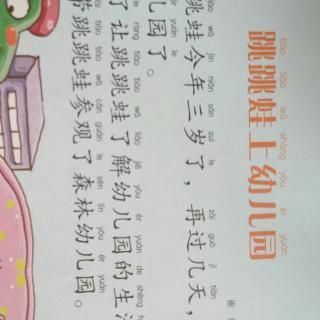 tiào tiào wā shàng yòu ér yuán
跳跳蛙上幼儿园
wā jīn nián sān suì le zài guò jǐ tiān
跳蛙今年三岁了，再过几天，
ér yuán le
儿园了。
le ràng tiào tiào wā liǎo jiě yòu ér yuán de shēng
了让跳跳蛙了解幼儿园的生
tiào tiào wā cān guān le sēn lín yòu ér yuán
带跳跳蛙参观了森林幼儿园。